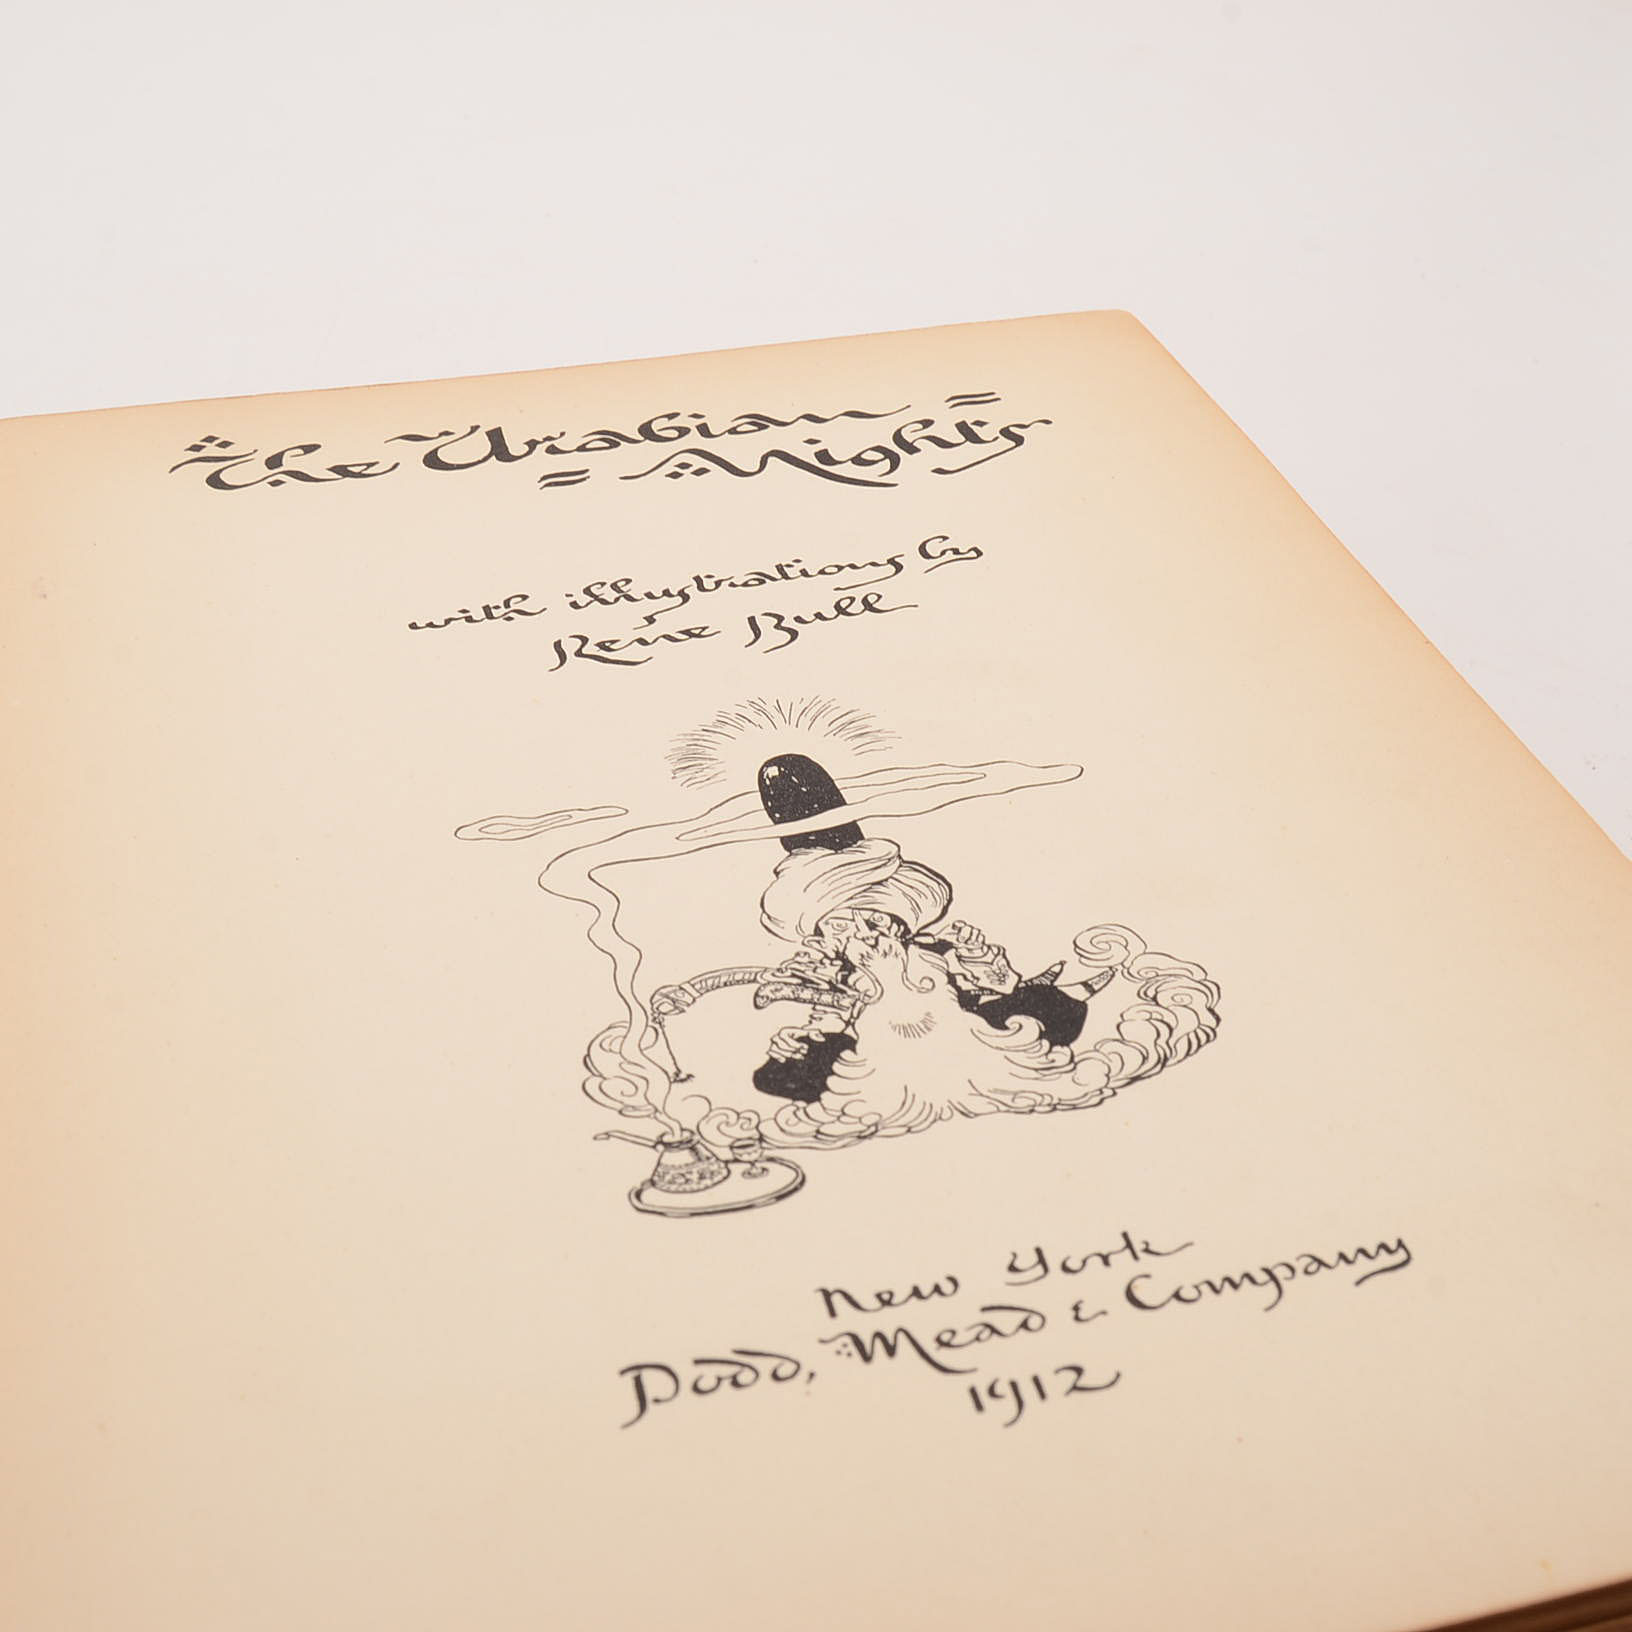 The Arabian
Nights
with illustrations by
René Bull
New York
Dodd, Mead & Company
1912